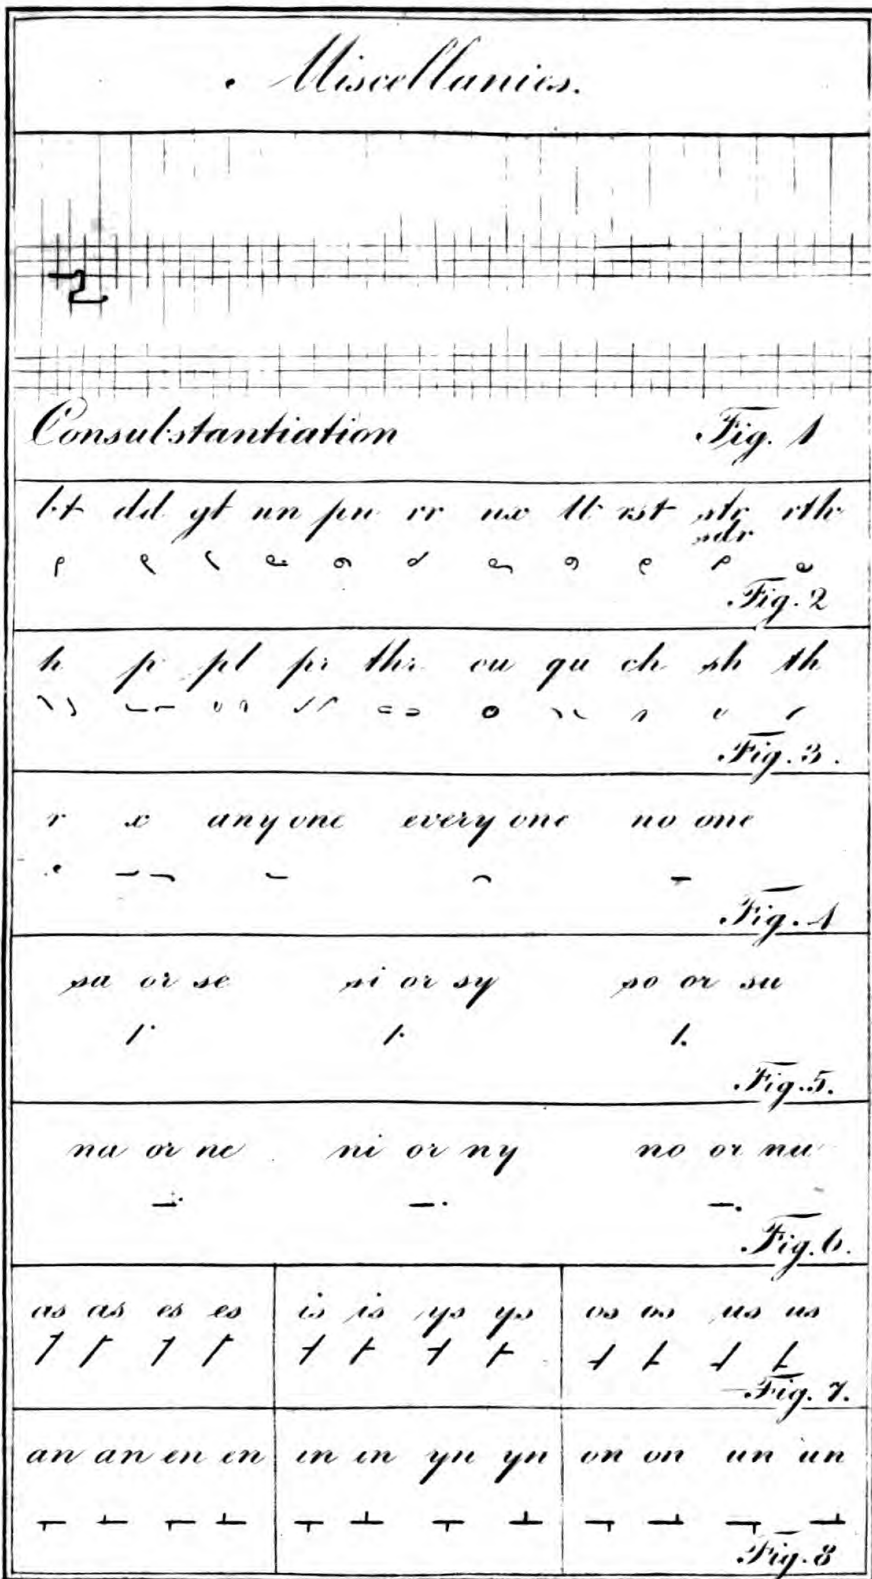 Miscellanies.
Consubstantiation Fig. 1
bt dd gt nn pn rr nx tt rst str rth
sdr
Fig. 2
h p pl pr thr ou qu ch sh th
Fig. 3.
r x any one every one no one
Fig. 4
sa or se si or sy so or su
Fig. 5.
na or ne ni or ny no or nu
Fig. 6.
as as es es is is ys ys os os us us
Fig. 7.
an an en en in in yn yn on on un un
Fig. 8